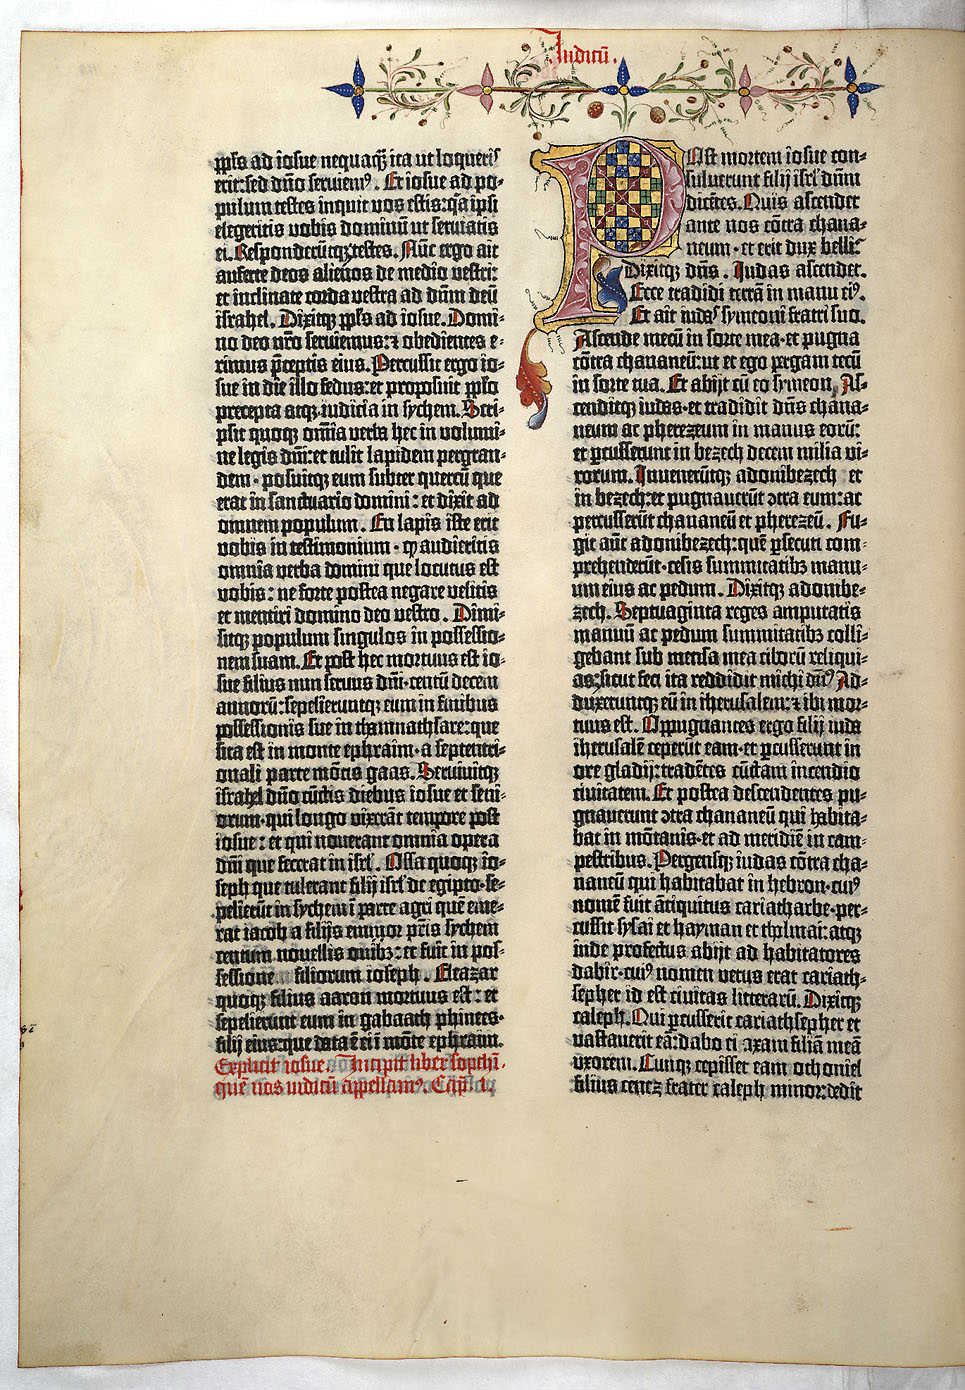 Iudicū.
pp̄ls ad iosue nequaq̄ ita ut loqueris
erit: sed dn̄o seruiemꝰ. Et iosue ad po-
pulum testes inquit vos estis: q̄a ipsi
elegeritis vobis dominū ut seruiatis
ei. Responderūtqꝫ testes. Nūc ergo ait
auferte deos alienos de medio vestri:
et inclinate corda vestra ad dn̄m deū
israhel. Dixitqꝫ pp̄ls ad iosue. Domi-
no deo nr̄o seruiemus: ⁊ obedientes e-
rimus p̄ceptis eius. Percussit ergo io-
sue in die illo fedus: et proposuit pp̄lo
precepta atqꝫ iudicia in sychem. Scri-
psit quoqꝫ om̄ia verba hec in volumi-
ne legis dn̄i: et tulit lapidem pergran-
dem · posuitqꝫ eum subter quercū que
erat in sanctuario domini: et dixit ad
omnem populum. En lapis iste erit
vobis in testimonium · ꝙ audieritis
omnia verba domini que locutus est
vobis: ne forte postea negare velitis
et mentiri domino deo vestro. Dimi-
sitqꝫ populum singulos in possessio-
nem suam. Et post hec mortuus est io-
sue filius nun seruus dn̄i · centū decem
annorū: sepelieruntqꝫ eum in finibus
possessionis sue in thamnathsare: que
sita est in monte ephraim · a septentri-
onali parte mōtis gaas. Seruiuitqꝫ
israhel dn̄o cūctis diebus iosue et seni-
orum · qui longo vixerāt tempore post
iosue: et qui nouerant omnia opera
dn̄i que fecerat in isrl̄. Ossa quoqꝫ io-
seph que tulerant filij isrl̄ de egipto · se-
pelierūt in sychem ī parte agri quē eme-
rat iacob a filijs emmor pr̄is sychem
centum nouellis ouibꝫ: et fuit in pos-
sessionē filiorum ioseph. Eleazar
quoqꝫ filius aaron mortuus est: et
sepelierunt eum in gabaath phinees ·
filij eius: que data ē ei ī mōte ephraim.
Explicit iosue. Incipit liber sopthī.
quē nos iudicū appellamꝰ. Cap. I.
Post mortem iosue con-
suluerunt filij isrl̄ dn̄m
dicētes. Quis ascendet
ante nos cōtra chana-
neum · et erit dux belli?
Dixitqꝫ dn̄s. Iudas ascendet.
Ecce tradidi terrā in manu eiꝰ.
Et ait iudas symeoni fratri suo.
Ascende mecū in sorte mea · et pugna
cōtra chananeū: ut et ego pergam tecū
in sorte tua. Et abijt cū eo symeon. As-
cenditqꝫ iudas · et tradidit dn̄s chana-
neum ac pherezeum in manus eorū:
et ꝑcusserunt in bezech decem milia vi-
rorum. Inuenerūtqꝫ adonibezech et
in bezech: et pugnauerūt ↄtra eum: ac
percusserūt chananeū et pherezeū. Fu-
git aūt adonibezech: quē ꝑsecuti com-
prehenderūt · cesis summitatibꝫ manu-
um eius ac pedum. Dixitqꝫ adonibe-
zech. Septuaginta reges amputatis
manuū ac pedum summitatibꝫ colli-
gebant sub mensa mea ciborū reliqui-
as: sicut feci ita reddidit michi dn̄s. Ad-
duxeruntqꝫ eū in iherusalem: ⁊ ibi mor-
tuus est. Oppugnantes ergo filij iuda
iherusalē ceperūt eam · et ꝑcusserunt in
ore gladij: tradētes cūctam incendio
ciuitatem. Et postea descendentes pu-
gnauerunt ↄtra chananeū qui habita-
bat in mōtanis · et ad meridiē in cam-
pestribus. Pergensqꝫ iudas cōtra cha-
naneū qui habitabat in hebron · cuiꝰ
nomē fuit ātiquitus cariatharbe · per-
cussit sysai et hayman et tholmai: atqꝫ
inde profectus abijt ad habitatores
dabir · cuiꝰ nomen vetus erat cariath-
sepher id est ciuitas litterarū. Dixitqꝫ
caleph. Qui ꝑcusserit cariathsepher et
vastauerit eā: dabo ei axam filiā meā
uxorem. Cunqꝫ cepisset eam othoniel
filius cenez frater caleph minor: dedit